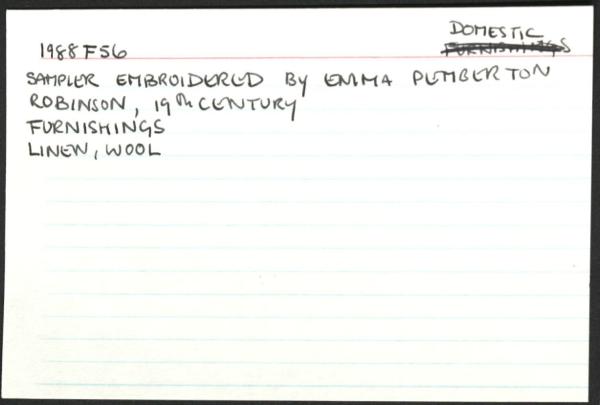 DOMESTIC
FURNISHINGS
1988 F56
SAMPLER EMBROIDERED BY EMMA PEMBERTON
ROBINSON, 19th CENTURY
FURNISHINGS
LINEN, WOOL